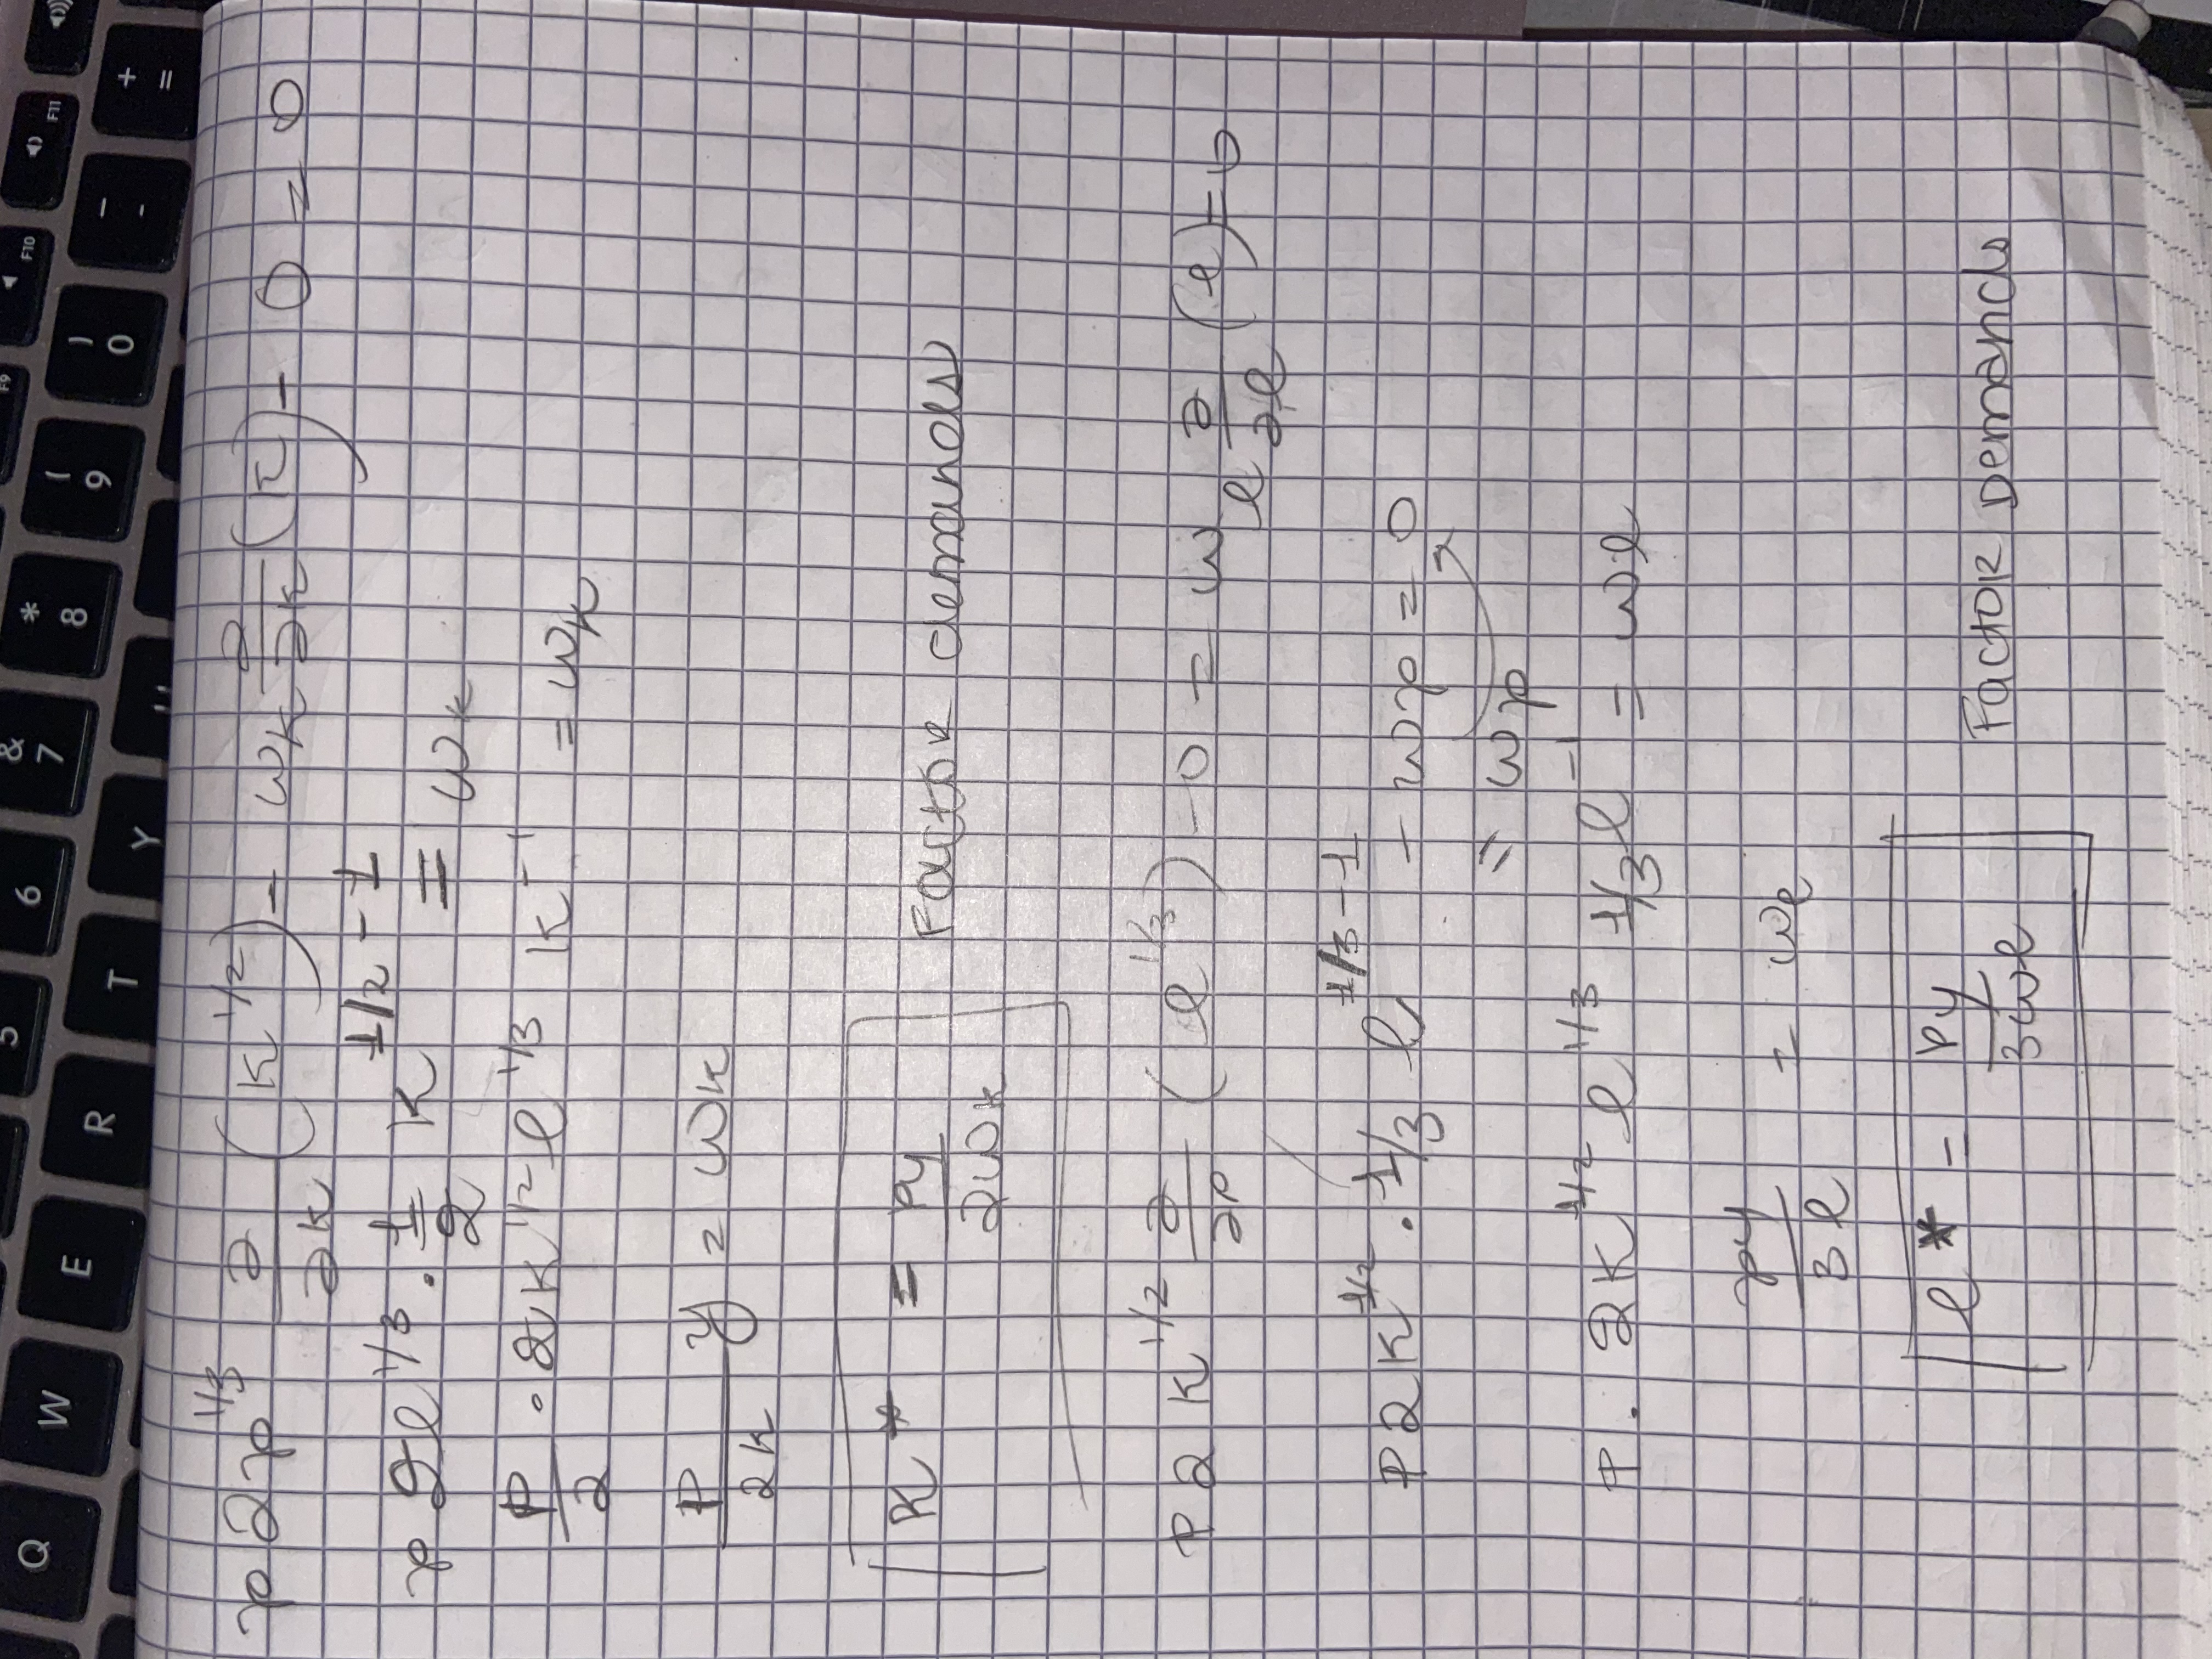 p2p^1/3 ∂/∂k (k^1/2) - wk ∂/∂k (k) - 0 = 0
p 2l^1/3 · 1/2 k^1/2-1 = wk
P/2 · 2k^1/2 l^1/3 k^-1 = wk
P/2k y = wk
K* = Py/2wk Factor demands
P 2 K^1/2 ∂/∂p (l^1/3) - 0 = w l ∂/∂l (l) = 0
P2K^1/2 · 1/3 l^1/3-1 - wp = 0
= wp
P · 2K^1/2 l^1/3 1/3 l^-1 = wl
py/3l = wl
l* = Py/3wl Factor Demands
Q W E R T Y
5 6 & 7 * 8 ( 9 ) 0 _ - + =
F9 F10 F11